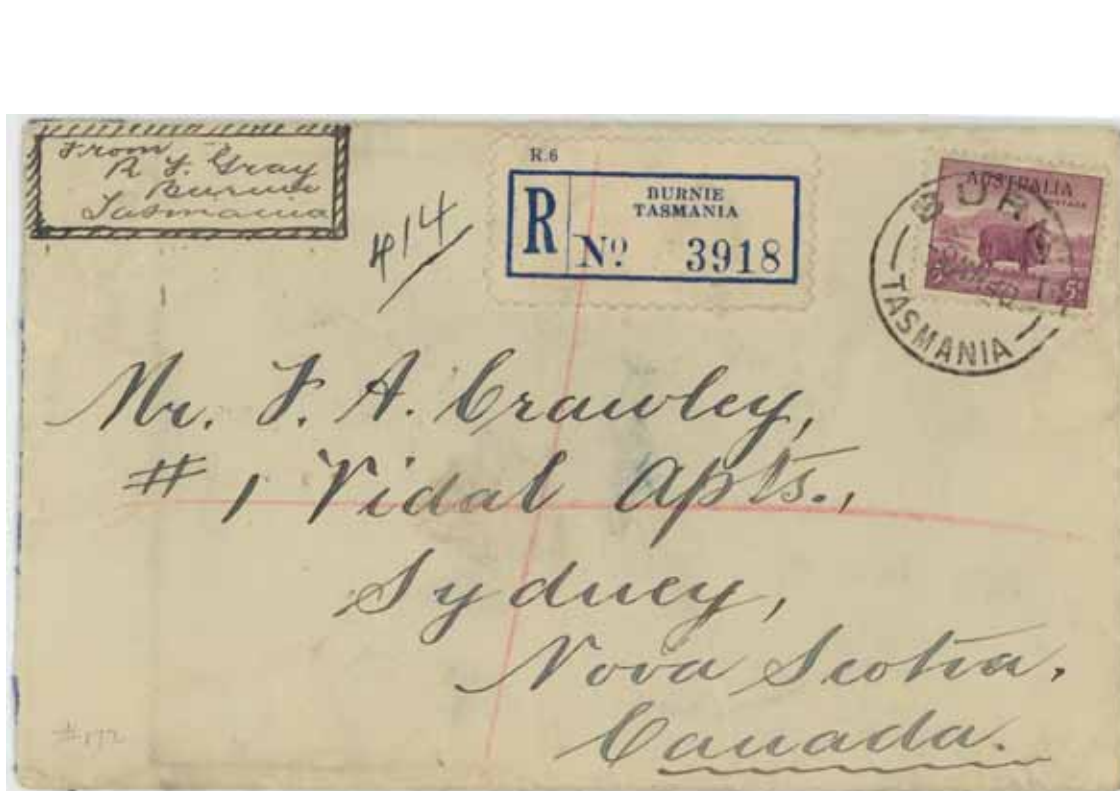 From
R. F. Gray
Burnie
Tasmania
414
R.6
R
BURNIE
TASMANIA
Nº 3918
AUSTRALIA
POSTAGE
5D
BUR
TASMANIA
Mr. F. A. Crawley,
# 1 Vidal Apts.,
Sydney,
Nova Scotia,
Canada.